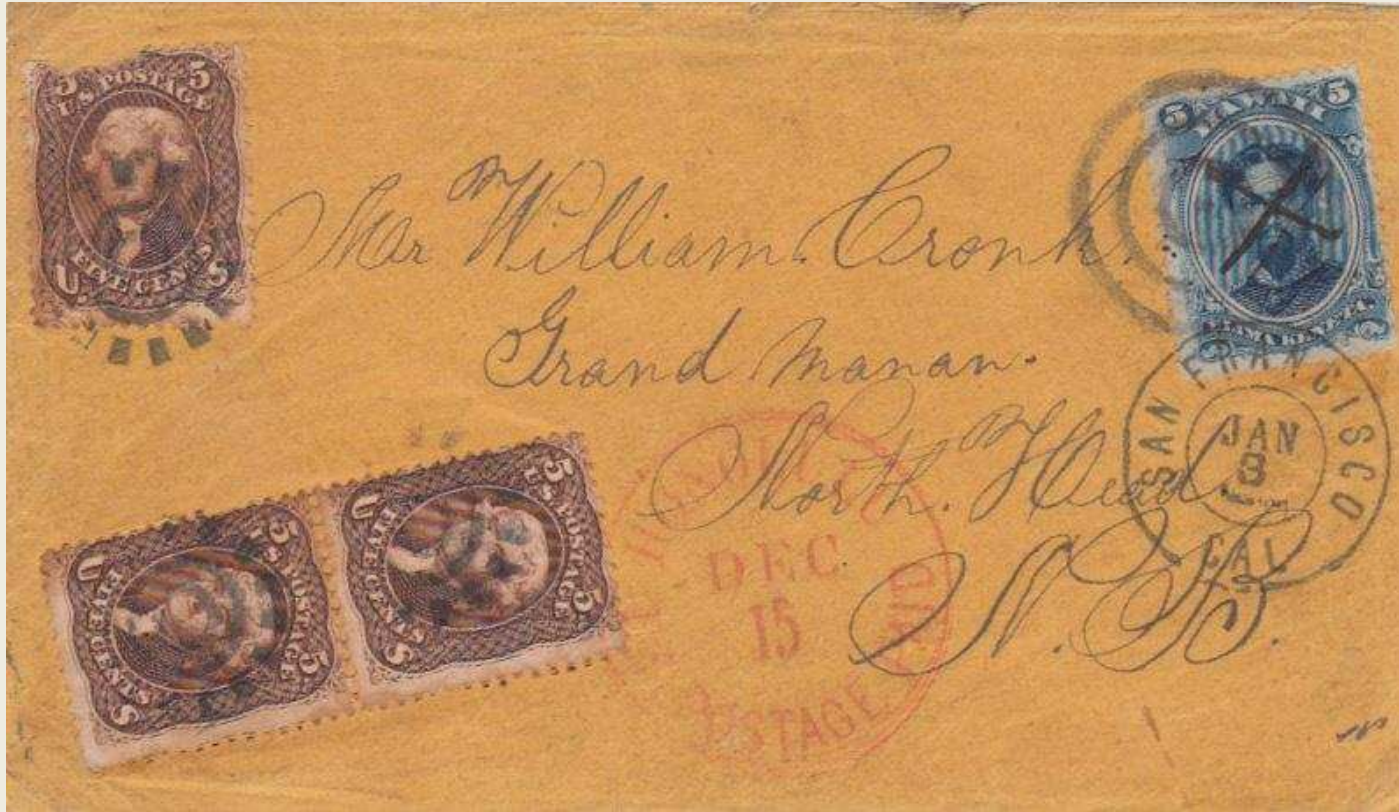 5 5
U S POSTAGE
FIVE CENTS
U. S
5 5
HAWAII
Mr William Cronk.
Grand Manan.
North. Head
N. B.
SAN FRANCISCO
JAN
3
CAL
DEC
15
POSTAGE PAID
5 5
U.S. POSTAGE
FIVE CENTS
U S
5 5
U.S. POSTAGE
FIVE CENTS
U S